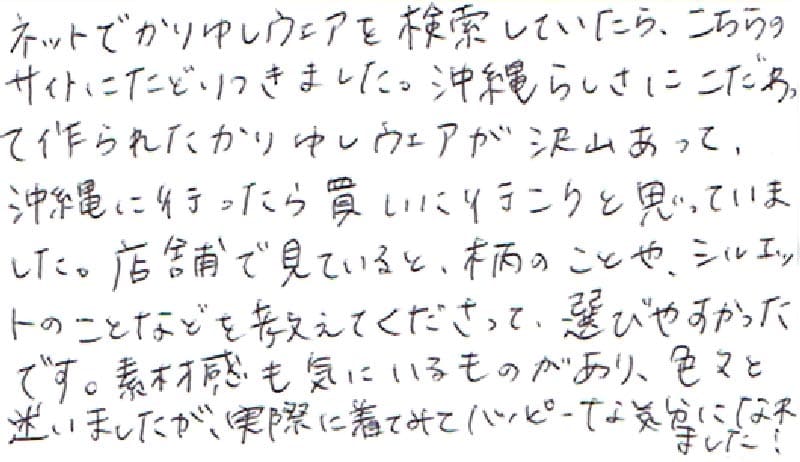 ネットでかりゆしウェアを検索していたら、こちらの
サイトにたどりつきました。沖縄らしさにこだわっ
て作られたかりゆしウェアが沢山あって、
沖縄に行ったら買いに行こうと思っていま
した。店舗で見ていると、柄のことや、シルエッ
トのことなどを教えてくださって、選びやすかった
です。素材感も気にいるものがあり、色々と
迷いましたが、実際に着てみてハッピーな気分になれ
ました!